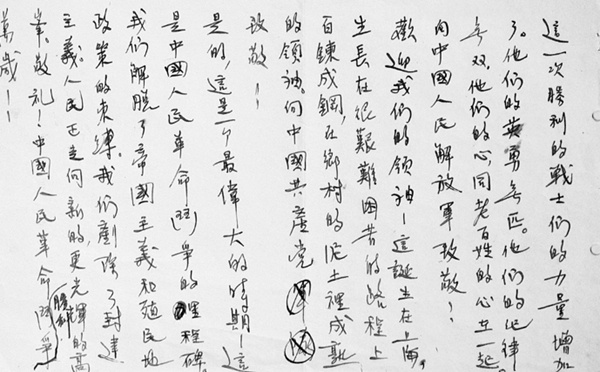 這一次勝利的戰士們的力量增加
了。他们的英勇無匹。他们的纪律
無双,他们的心同老百姓的心在一起。
向中國人民解放軍致敬!
歡迎我们的領袖—這誕生在上海,
生長在很艱難困苦的路程上
百鍊成鋼,在鄉村的泥土裡成熟
的領袖。向中國共產党
致敬!
是的,這是一个最偉大的時期—這
是中國人民革命鬥爭的里程碑。
我们解脫了帝國主義和殖民地
政策的束縛。我们剷除了封建
主義。人民正走向新的,更光輝的高
峯。敬礼!中國人民革命鬥爭勝利
萬歲!